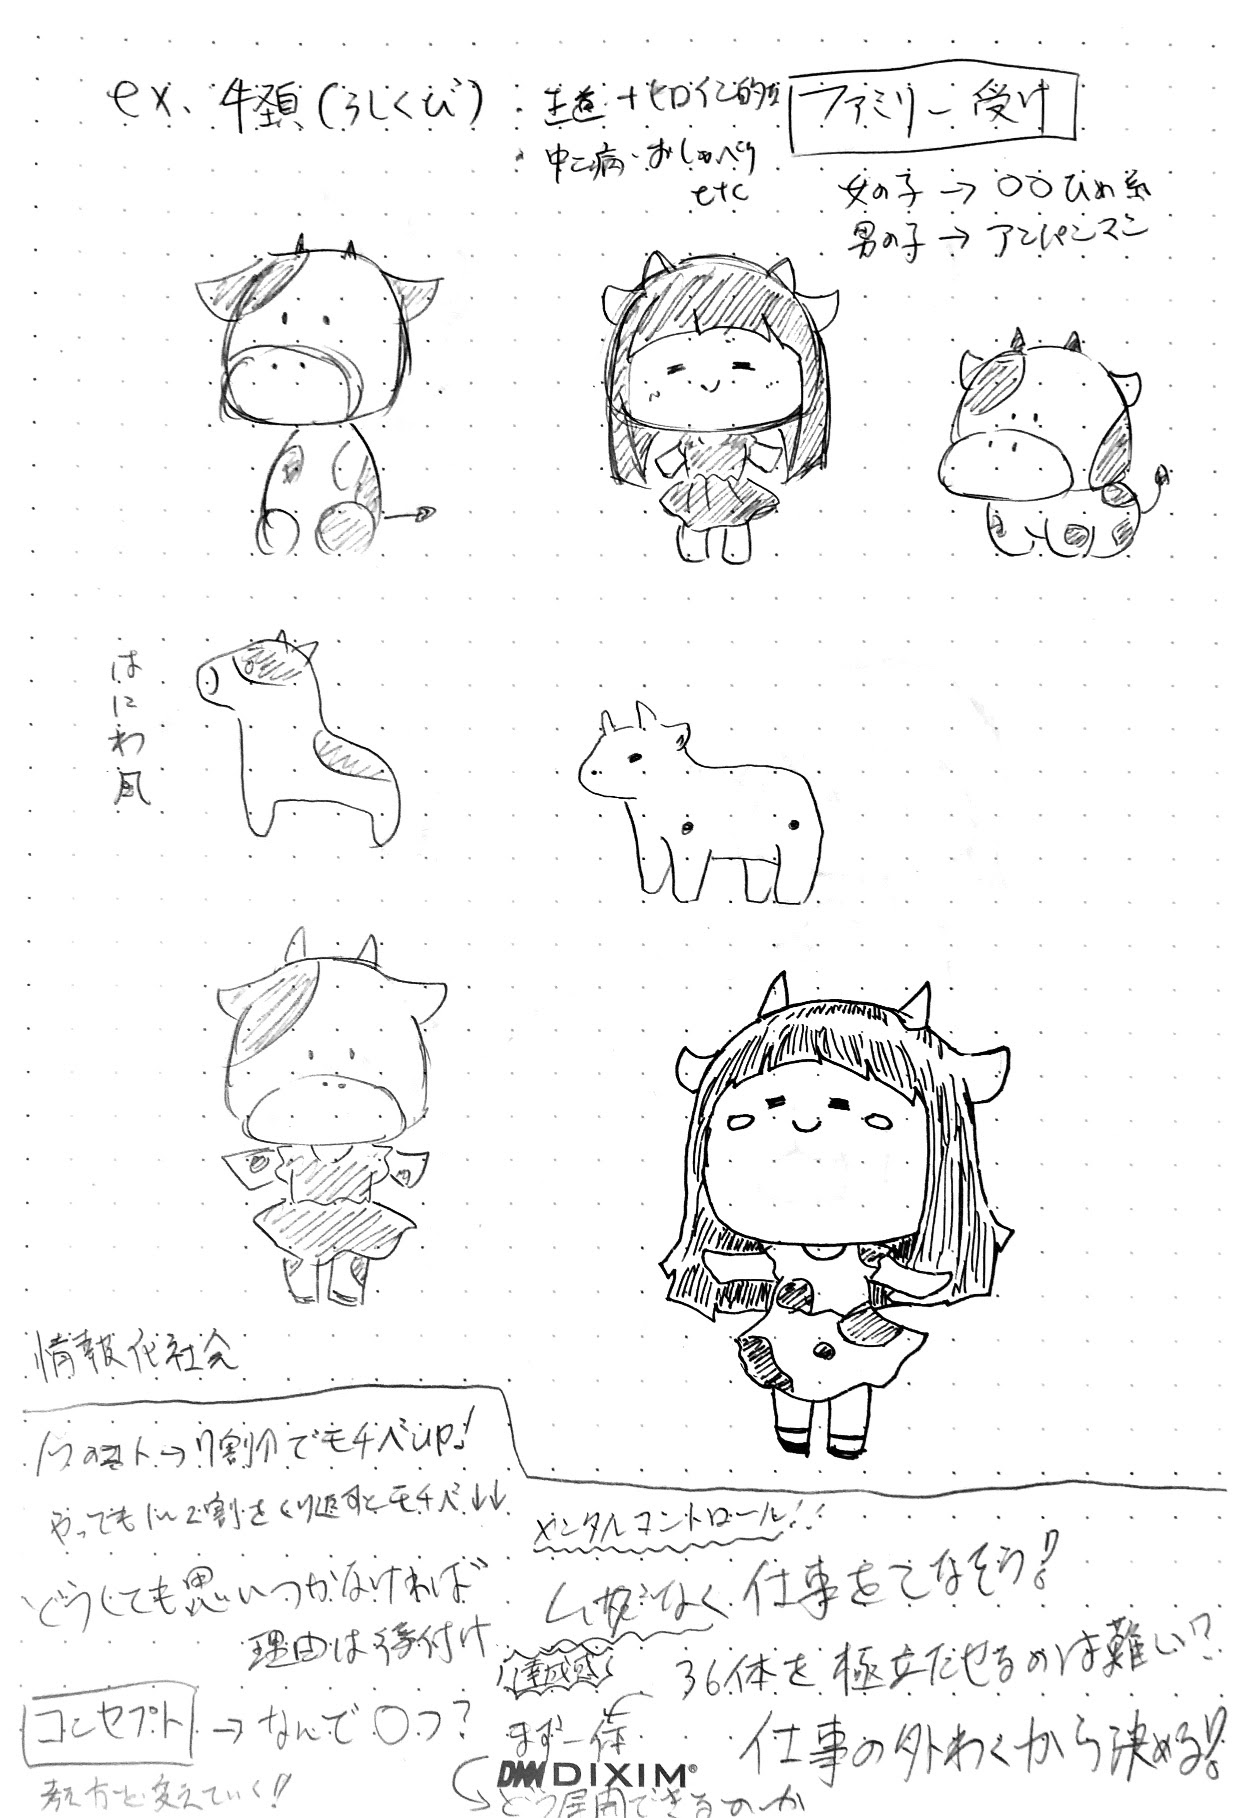 ex. 牛頸(うしくび)
・王道 + ヒロイン的
ファミリー受け
・中二病・おしゃべり
etc
女の子 → ○○ひめ系
男の子 → アンパンマン
はにわ風
情報化社会
→ 7割介でモチベUP!
やっても 2割をくり返すと モチベ↓↓
どうしても思いつかなければ
理由は後付け
コンセプト → なんで○つ?
考え方を変えていく!!
メンタルコントロール!!
ムダなく 仕事をこなそう!
達成感
36体を極立たせるのは難しい?
まず一体
仕事の外わくから決める!!
DMM DIXIM®
どう展開できるのか